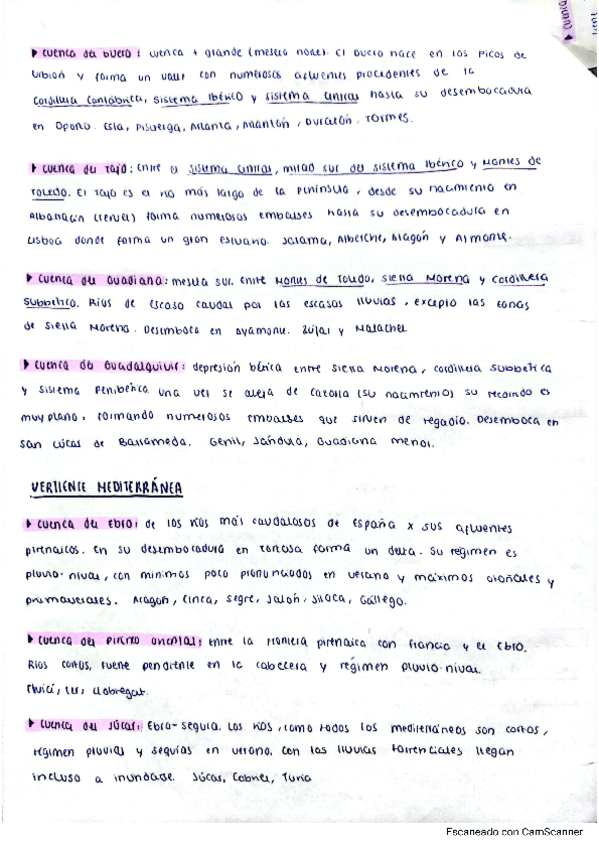 Cuenca
▸ Cuenca del Duero: cuenca + grande (meseta norte). El Duero nace en los Picos de
Urbión y forma un valle con numerosos afluentes procedentes de la
Cordillera Cantábrica, Sistema Ibérico y Sistema Central hasta su desembocadura
en Oporto. Esla, Pisuerga, Arlanza, Adantón, Duratón, Tormes.
▸ Cuenca del Tajo: Entre el Sistema Central, mitad sur del Sistema Ibérico y Montes de
Toledo. El Tajo es el río más largo de la Península, desde su nacimiento en
Albarracín (Teruel) forma numerosos embalses hasta su desembocadura en
Lisboa donde forma un gran estuario. Jarama, Alberche, Alagón y Almonte.
▸ Cuenca del Guadiana: meseta sur. Entre Montes de Toledo, Sierra Morena y Cordillera
Subbética. Ríos de escaso caudal por las escasas lluvias, excepto las zonas
de Sierra Morena. Desemboca en Ayamonte. Zújar y Matachel.
▸ Cuenca do Guadalquivir: depresión bética entre Sierra Morena, cordillera Subbética
y Sistema Penibético. Una vez se aleja de Cazorla (su nacimiento) su recorrido es
muy plano, formando numerosos embalses que sirven de regadío. Desemboca en
San Lúcas de Barrameda. Genil, Jándula, Guadiana menor.
VERTIENTE MEDITERRÁNEA
▸ Cuenca del Ebro: de los ríos más caudalosos de España x sus afluentes
pirenaicos. En su desembocadura en Tortosa forma un delta. Su régimen es
pluvio-nival, con mínimos poco pronunciados en verano y máximos otoñales y
primaverales. Aragón, Cinca, Segre, Jalón, Jiloca, Gállego.
▸ Cuenca del Pirineo oriental: entre la frontera pirenaica con Francia y el Ebro.
Ríos cortos, fuerte pendiente en la cabecera y régimen pluvio-nival.
Fluviá, Ter, Llobregat.
▸ Cuenca del Júcar: Ebro-Segura. Los ríos, como todos los mediterráneos son cortos,
régimen pluvial y sequías en verano. Con las lluvias torrenciales llegan
incluso a inundarse. Júcar, Cabriel, Turia
Escaneado con CamScanner